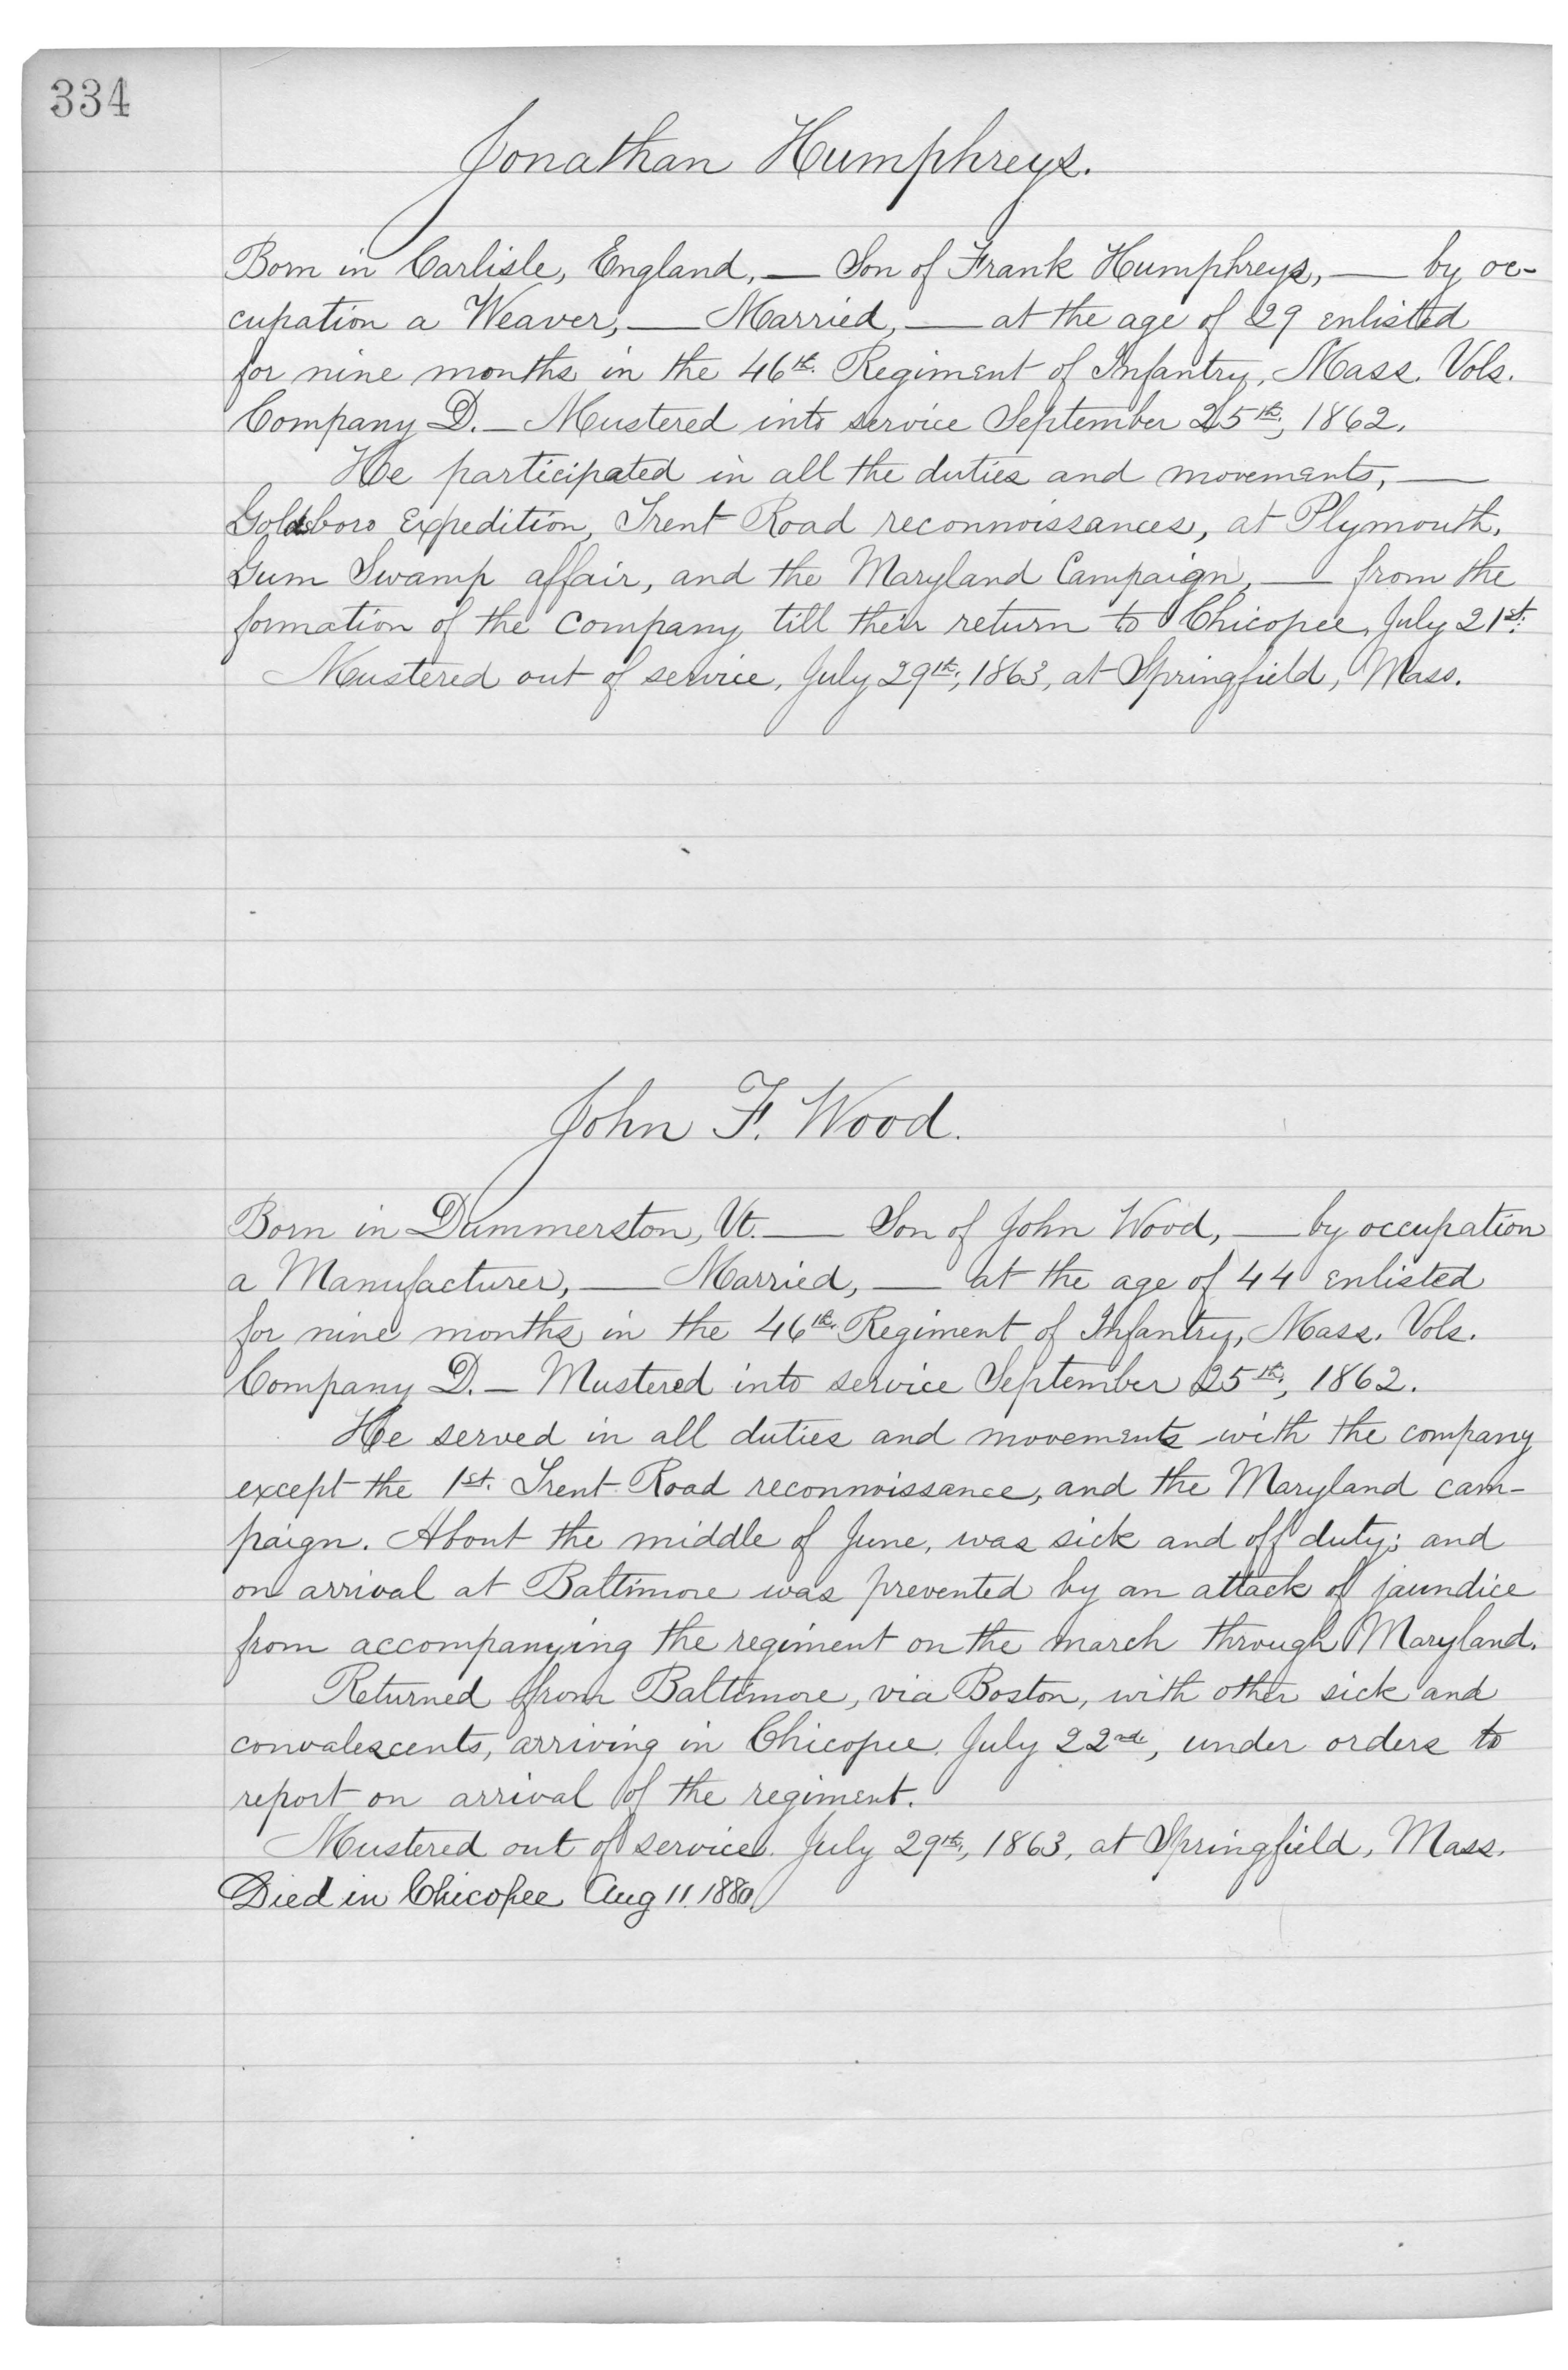 334
Jonathan Humphreys.
Born in Carlisle, England, — Son of Frank Humphreys, — by oc-
cupation a Weaver, — Married, — at the age of 29 enlisted
for nine months in the 46th. Regiment of Infantry, Mass. Vols.
Company D. — Mustered into service September 25th, 1862.
He participated in all the duties and movements, —
Goldsboro Expedition, Trent Road reconnoissances, at Plymouth,
Gum Swamp affair, and the Maryland Campaign, — from the
formation of the company till their return to Chicopee, July 21st.
Mustered out of service, July 29th, 1863, at Springfield, Mass.
John F. Wood.
Born in Dummerston, Vt. — Son of John Wood, — by occupation
a Manufacturer, — Married, — at the age of 44 enlisted
for nine months in the 46th. Regiment of Infantry, Mass. Vols.
Company D. — Mustered into service September 25th, 1862.
He served in all duties and movements with the company
except the 1st. Trent Road reconnoissance, and the Maryland cam-
paign. About the middle of June, was sick and off duty; and
on arrival at Baltimore was prevented by an attack of jaundice
from accompanying the regiment on the march through Maryland.
Returned from Baltimore, via Boston, with other sick and
convalescents, arriving in Chicopee July 22nd, under orders to
report on arrival of the regiment.
Mustered out of service July 29th, 1863, at Springfield, Mass.
Died in Chicopee Aug 11. 1880